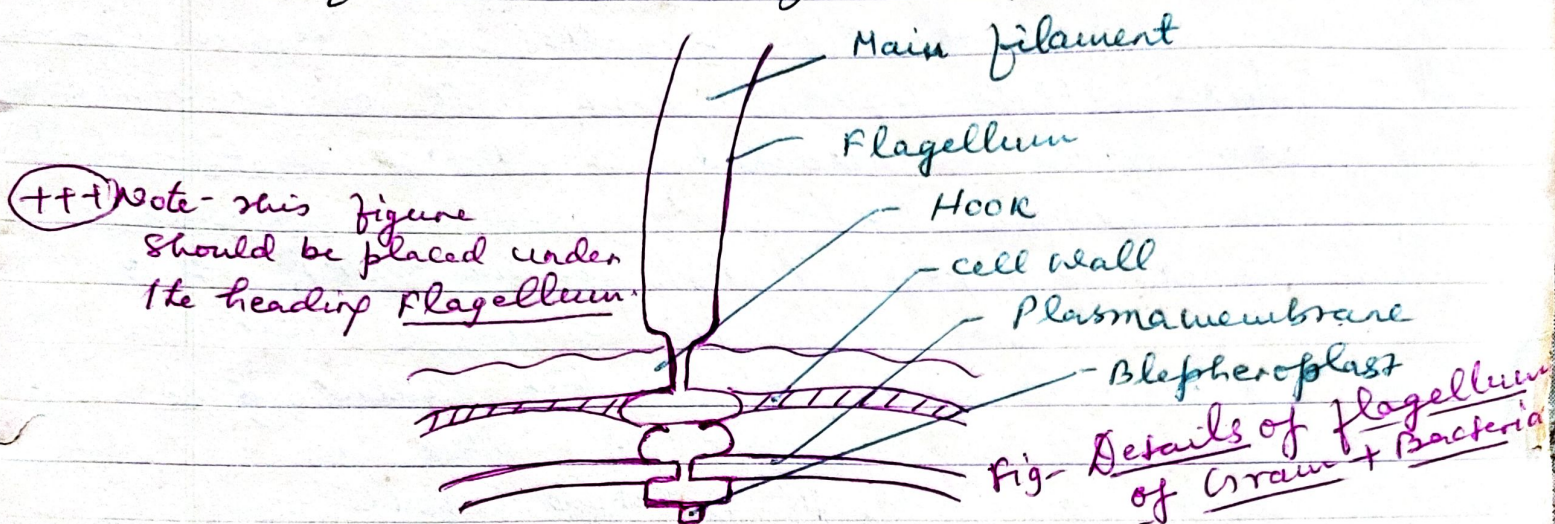 Main filament
Flagellum
+++ Note- This figure
should be placed under
the heading Flagellum.
Hook
cell wall
Plasmamembrane
Blepheroplast
Fig- Details of flagellum
of Gram + Bacteria